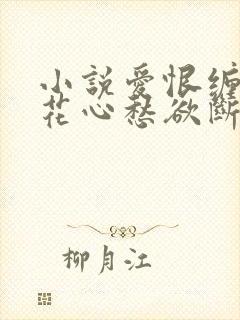 小說愛恨纏
花心愁欲斷
柳月江